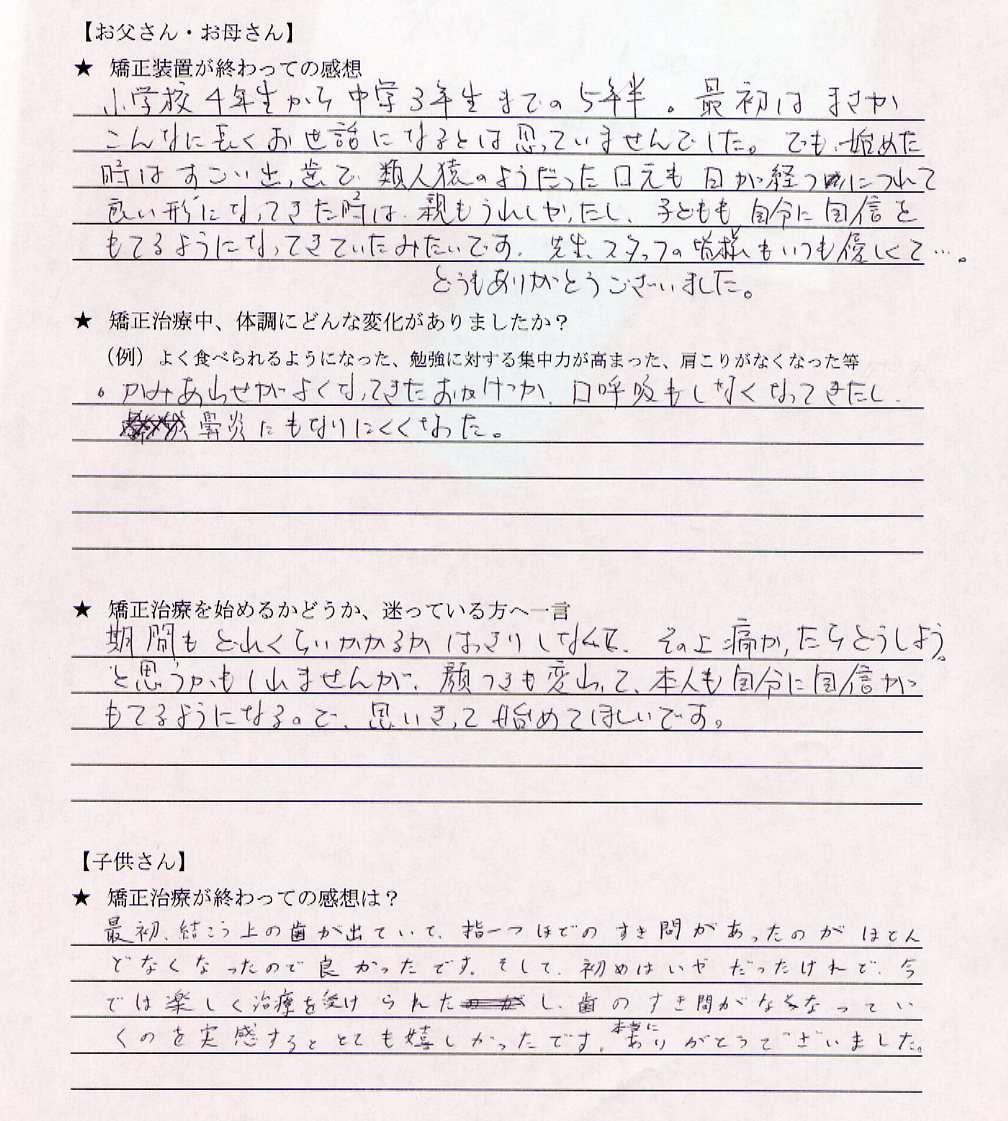 【お父さん・お母さん】
★ 矯正装置が終わっての感想
小学校4年生から中学3年生までの5年半。最初はまさか
こんなに長くお世話になるとは思っていませんでした。でも、始めた
時はすごい出っ歯で、類人猿のようだった口元も日が経つにつれて
良い形になってきた時は、親もうれしかったし、子どもも自分に自信を
もてるようになってきていたみたいです。先生、スタッフの皆様もいつも優しくて…。
どうもありがとうございました。
★ 矯正治療中、体調にどんな変化がありましたか？
（例）よく食べられるようになった、勉強に対する集中力が高まった、肩こりがなくなった等
。かみあわせがよくなってきたおかげか、口呼吸もしなくなってきたし、
鼻炎にもなりにくくなった。
★ 矯正治療を始めるかどうか、迷っている方へ一言
期間もどれくらいかかるかはっきりしなくて、その上痛かったらどうしよう。
と思うかもしれませんが、顔つきも変わって、本人も自分に自信が
もてるようになるので、思いきって始めてほしいです。
【子供さん】
★ 矯正治療が終わっての感想は？
最初、結こう上の歯が出ていて、指一つほどのすき間があったのがほとん
どなくなったので良かったです。そして、初めはいやだったけれど、今
では楽しく治療を受けられたし、歯のすき間がなくなってい
くのを実感するととても嬉しかったです。本当にありがとうございました。